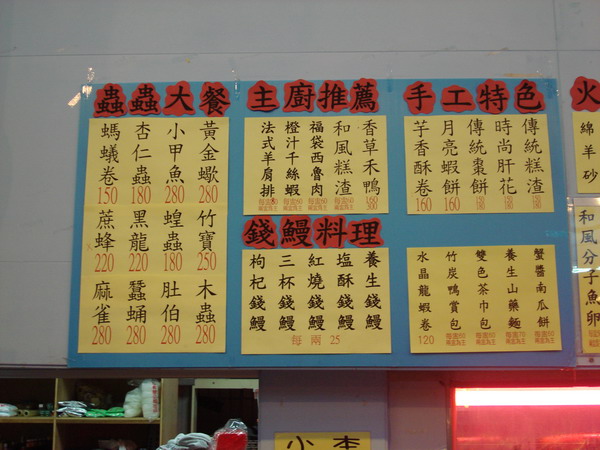 蟲蟲大餐
黃金蠍 280
小甲魚 280
杏仁蟲 180
螞蟻卷 150
竹寶 250
蝗蟲 180
黑龍 220
蔗蜂 220
木蟲 280
肚伯 280
蠶蛹 280
麻雀 280
主廚推薦
香草禾鴨
和風糕渣
福袋西魯肉
橙汁千絲蝦
法式羊肩排
錢鰻料理
養生錢鰻
塩酥錢鰻
紅燒錢鰻
三杯錢鰻
枸杞錢鰻
每兩25
手工特色
傳統糕渣
時尚肝花
傳統棗餅
月亮蝦餅 160
芋香酥卷 160
蟹醬南瓜餅
養生山藥麵
雙色茶巾包
竹炭鴨賞包
水晶龍蝦卷 120
火
綿羊砂
和風分子魚卵